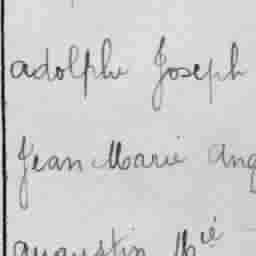 adolphe Joseph
Jean Marie ang
augustin Mié